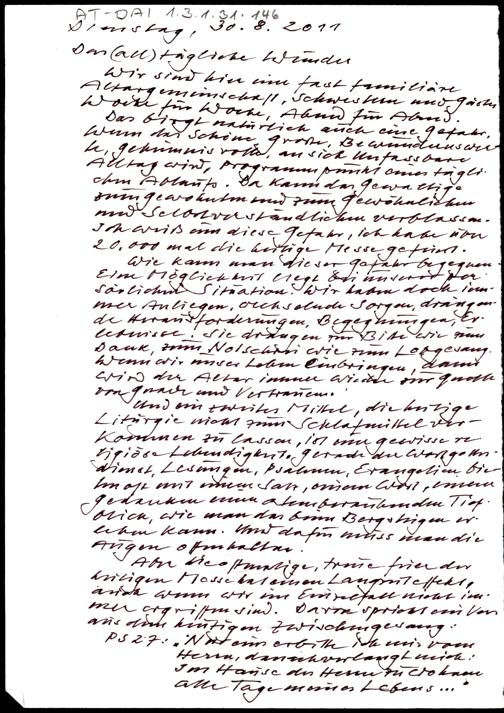 AT-DAI 1.3.1.31.146
Dienstag, 30.8.2011
Das (all)tägliche Wunder
Wir sind hier eine fast familiäre
Altargemeinschaft, Schwestern und Gäste
Woche für Woche, Abend für Abend.
Das birgt natürlich auch eine Gefahr.
Wenn das Schöne, Große, Bewundernswer
te, geheimnisvolle, an sich Unfassbare
Alltag wird, Programmpunkt eines tägli
chen Ablaufs. Da kann das Gewaltige
zum Gewohnten und zum Gewöhnlichen
und Selbstverständlichen verblassen.
Ich weiß um diese Gefahr, ich habe über
20.000 mal die heilige Messe gefeiert.
Wie kann man dieser Gefahr begegnen
Eine Möglichkeit liegt in unserer per
sönlichen Situation. Wir haben doch im
mer Anliegen, wechselnde Sorgen, drängen
de Herausforderungen, Begegnungen, Er
lebnisse. Sie drängen zur Bitte wie zum
Dank, zum Notschrei wie zum Lobgesang.
Wenn wir unser Leben einbringen, dann
wird der Altar immer wieder zur Quelle
von Gnade und Vertrauen.
Und ein zweites Mittel, die heilige
Liturgie nicht zum Schlafmittel ver-
kommen zu lassen, ist eine gewisse re
ligiöse Lebendigkeit. Gerade der Wortgottes
dienst, Lesungen, Psalmen, Evangelien bie
ten oft mit einem Satz, einem Wort, einem
Gedanken einen atemberaubenden Tief
blick, wie man das beim Bergsteigen er
leben kann. Und dafür muss man die
Augen offenhalten.
Aber die oftmalige, treue Feier der
heiligen Messe hat einen Langzeiteffekt,
auch wenn wir im Einzelfall nicht im
mer ergriffen sind. Davon spricht ein Vers
aus dem heutigen Zwischengesang:
PS 27: „Nur eins erbitte ich mir vom
Herrn, danach verlangt mich:
Im Hause des Herrn zu wohnen
alle Tage meines Lebens..."